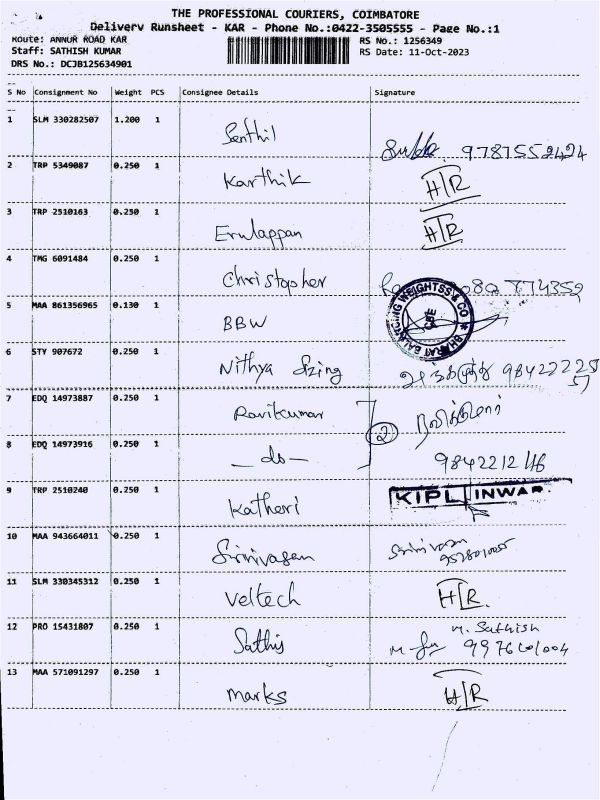 THE PROFESSIONAL COURIERS, COIMBATORE
Delivery Runsheet - KAR - Phone No.:0422-3505555 - Page No.:1
Route: ANNUR ROAD KAR
RS No.: 1256349
Staff: SATHISH KUMAR
RS Date: 11-Oct-2023
DRS No.: DCJB125634901
S No Consignment No Weight PCS Consignee Details Signature
1 SLM 330282507 1.200 1 Senthil 9787552424
2 TRP 5349087 0.250 1 Karthik H/R
3 TRP 2510163 0.250 1 Erulappan H/R
4 TMG 6091484 0.250 1 Christopher 774352
5 MAA 861356965 0.130 1 BBW BHARAT BALANCING WEIGHTSS & CO CBE
6 STY 907672 0.250 1 Nithya Sizing
7 EDQ 14973887 0.250 1 Ravikumar 2
8 EDQ 14973916 0.250 1 — do — 9842221246
9 TRP 2510240 0.250 1 Katheri KIPL INWAR
10 MAA 943664011 0.250 1 Srinivasan Srinivasan
11 SLM 330345312 0.250 1 Veltech H/R.
12 PRO 15431807 0.250 1 Sathis M. Sathish
13 MAA 571091297 0.250 1 Marks H/R